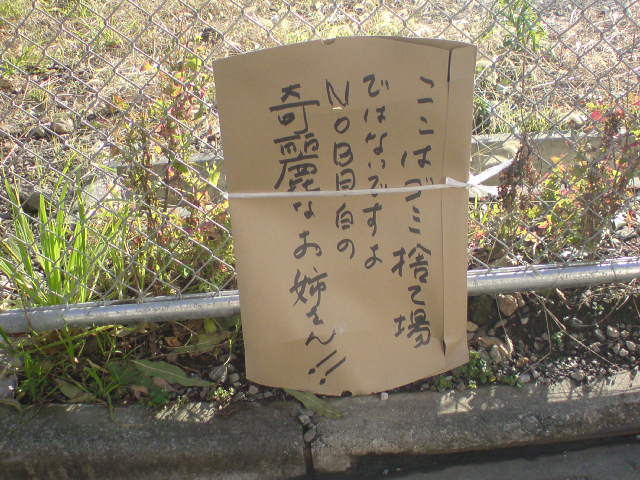 ここはゴミ捨て場
ではないですよ
NOB目白の
奇麗なお姉さん!!